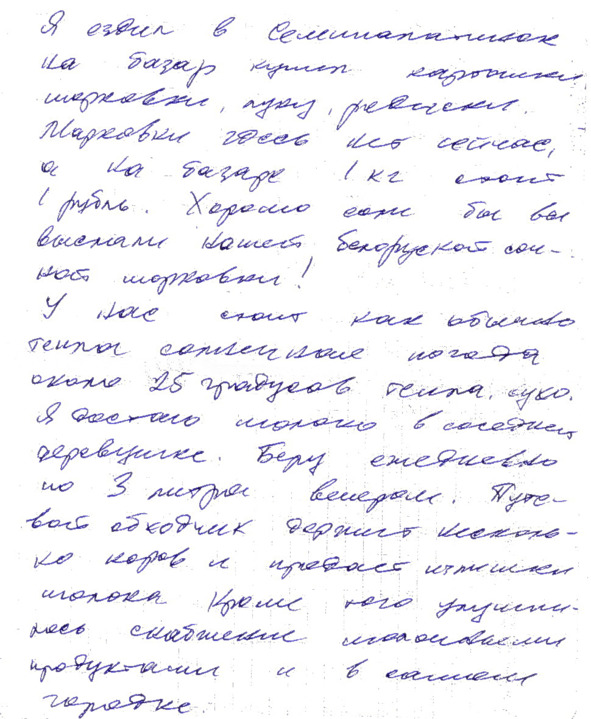 Я ездил в Семипалатинск
на базар купил картошки
морковки, луку, редиски.
Марковки здесь нет сейчас,
а на базаре 1 кг стоит
1 рубль. Хорошо если бы вы
выслали нашей белорусской соч-
ной морковки!
У нас стоит как обычно
теплая солнечная погода
около 25 градусов тепла, сухо.
Я достаю молоко в соседней
деревушке. Беру ежедневно
по 3 литра вечером. Путе-
вой обходчик держит несколь-
ко коров и продает излишки
молока Кроме того улучши-
лось снабжение молочными
продуктами и в самом
городке.